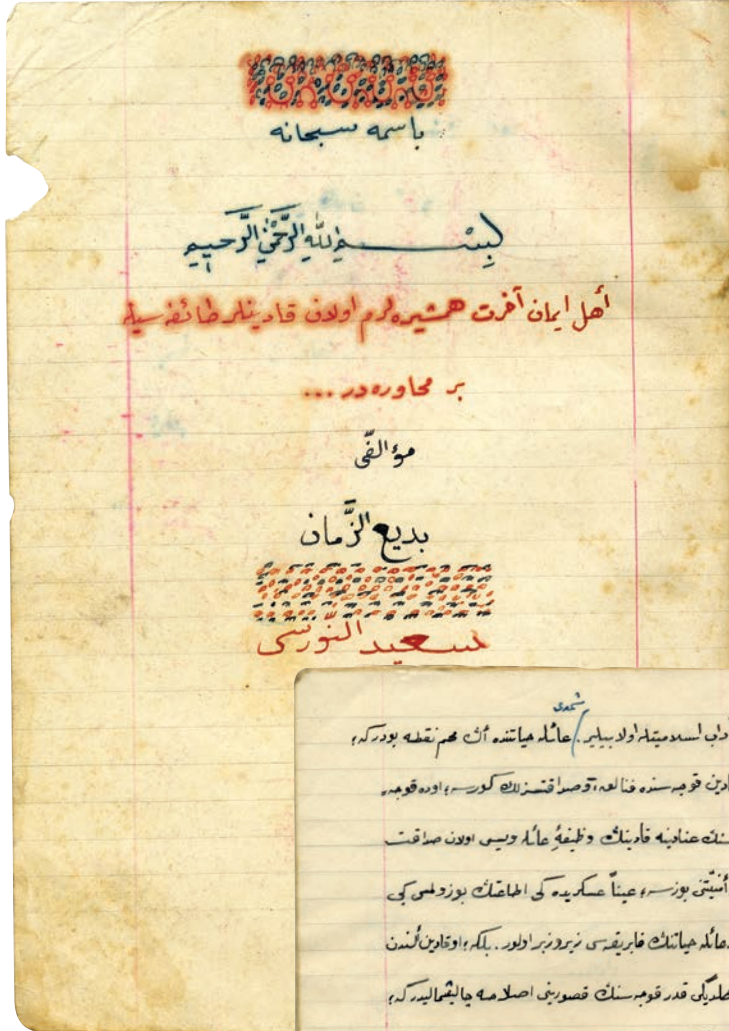 باسمه سبحانه
بِسْمِ اللّٰهِ الرَّحْمٰنِ الرَّحِيمِ
أهل ايمان آخرت همشيره‌لرم اولان قادينلر طائفه‌سيله
بر محاوره‌در ...
مؤلفى
بديع الزَّمان
سعيد النّورسى
شمدى
اولابيلير . عائله حياتنده أڭ مهم نقطه بودركه ؛
قوجه‌سنده فنالق و صداقتسزلك كورسه ؛ اوده قوجه‌
عنادينه قادينڭ وظيفۀ عائله‌ويسى اولان صداقت
أمنيّتى بوزسه ؛ عيناً عسكريده‌كى اطاعتڭ بوزولمسى كبى
عائله حياتنڭ فابريقه‌سى زيروزبر اولور . بلكه ؛ اوقادين ألندن
قدر قوجه‌سنڭ قصورينى اصلاحه چاليشماليدركه ؛